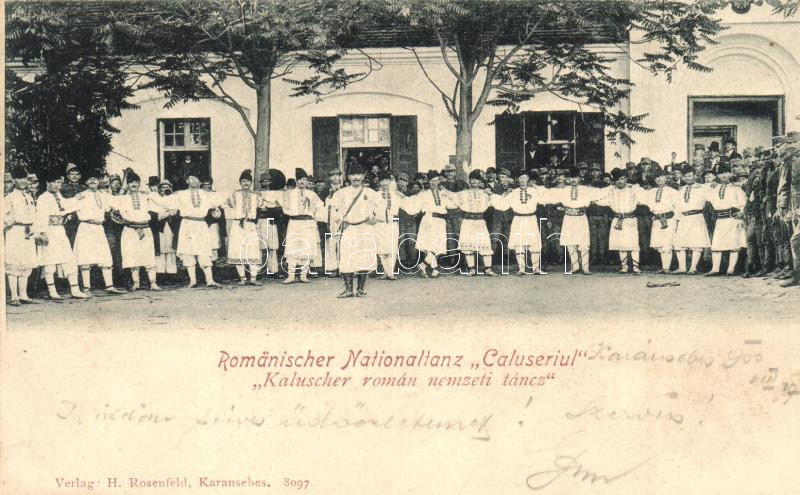 Românischer Nationaltanz „Caluseriul“
„Kaluscher román nemzeti táncz“
Karánsebes 900
VIII
szives üdvözletemet!
Verlag: H. Rosenfeld, Karansebes. 8097
darabanth